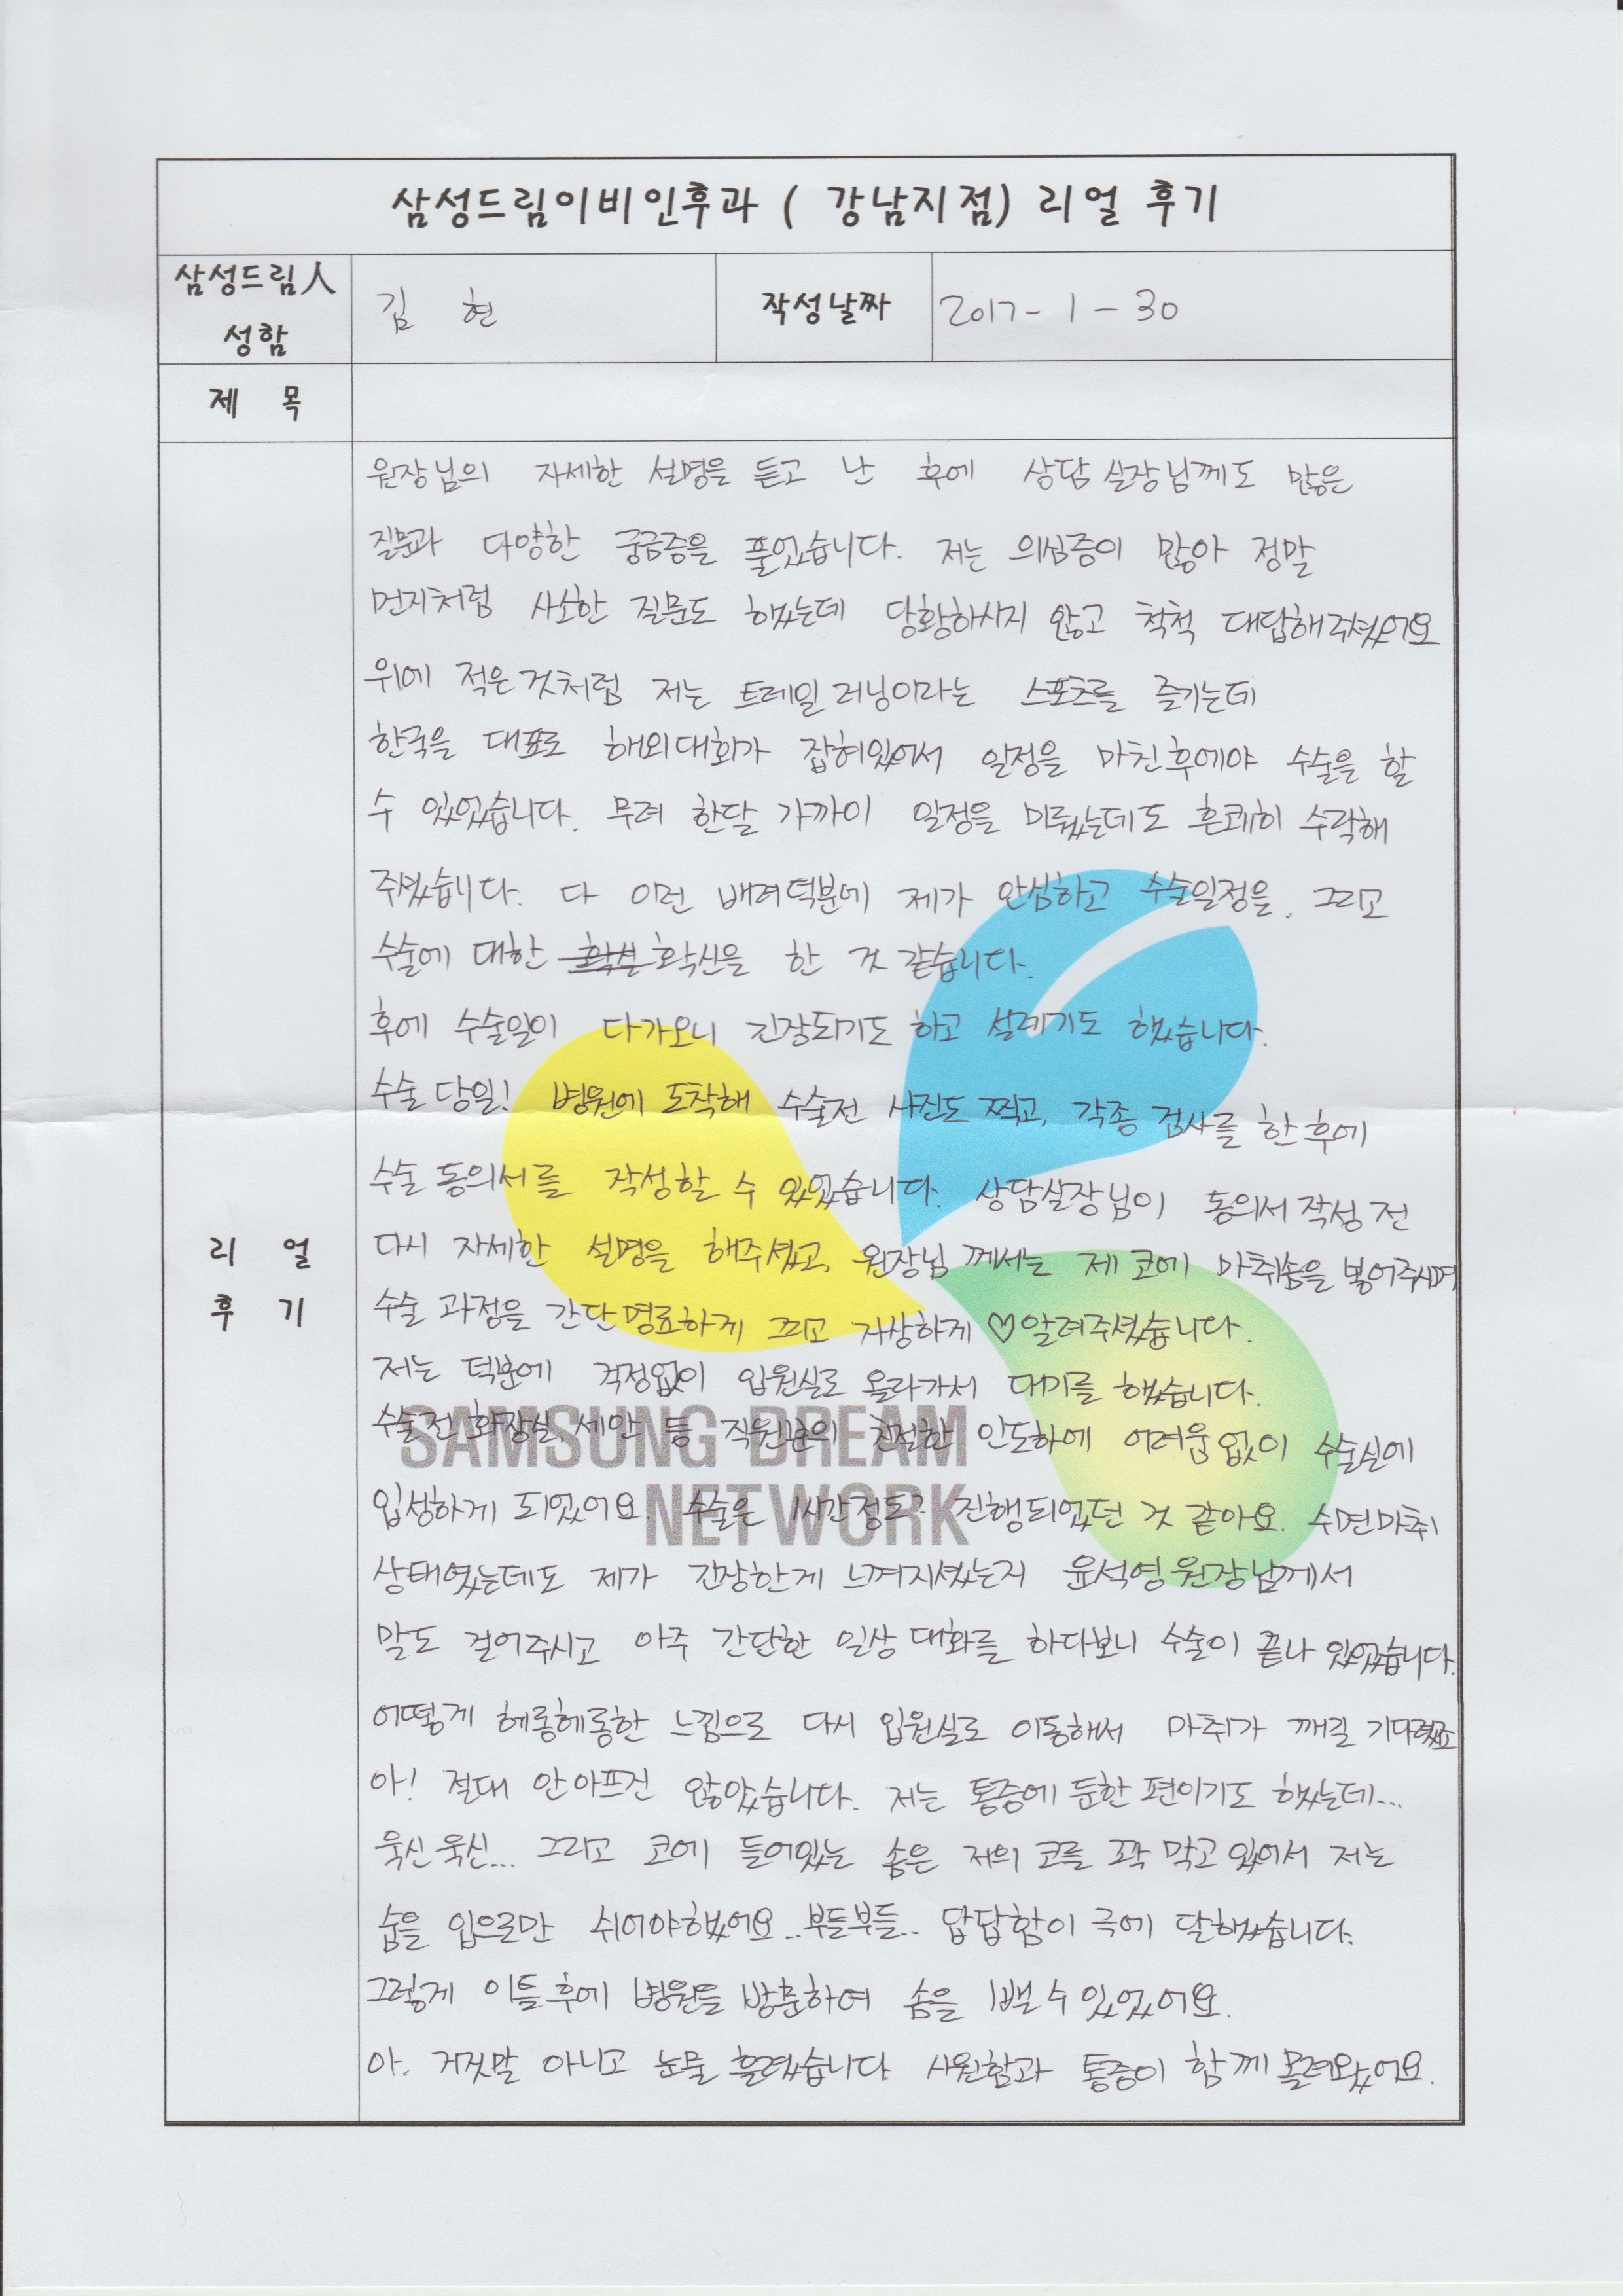 삼성드림이비인후과 ( 강남지점) 리얼 후기
삼성드림人
성함
김 현
작성날짜
2017-1-30
제 목
리 얼
후 기
원장님의 자세한 설명을 듣고 난 후에 상담실장님께도 많은
질문과 다양한 궁금증을 풀었습니다. 저는 의심증이 많아 정말
먼지처럼 사소한 질문도 했는데 당황하시지 않고 척척 대답해주셨어요
위에 적은것처럼 저는 트레일러닝이라는 스포츠를 즐기는데
한국을 대표로 해외대회가 잡혀있어서 일정을 마친후에야 수술을 할
수 있었습니다. 무려 한달 가까이 일정을 미뤘는데도 흔쾌히 수락해
주셨습니다. 다 이런 배려덕분에 제가 안심하고 수술일정을, 그리고
수술에 대한 확신을 한 것 같습니다.
후에 수술일이 다가오니 긴장되기도 하고 설레기도 했습니다.
수술 당일! 병원에 도착해 수술전 사진도 찍고, 각종 검사를 한후에
수술동의서를 작성할 수 있었습니다. 상담실장님이 동의서작성 전
다시 자세한 설명을 해주셨고, 원장님께서는 제 코에 마취솜을 넣어주시며
수술 과정을 간단명료하게 그리고 자상하게 ♡알려주셨습니다.
저는 덕분에 걱정없이 입원실로 올라가서 대기를 했습니다.
수술전 화장실, 세안 등 직원분의 친절한 인도하에 어려움없이 수술실에
입성하게 되었어요. 수술은 1시간정도? 진행되었던 것 같아요. 수면마취
상태였는데도 제가 긴장한게 느껴지셨는지 윤석영원장님께서
말도 걸어주시고 아주 간단한 일상 대화를 하다보니 수술이 끝나 있었습니다.
어떻게 헤롱헤롱한 느낌으로 다시 입원실로 이동해서 마취가 깨길 기다렸죠
아! 절대 안아프진 않았습니다. 저는 통증에 둔한 편이기도 했는데...
욱신욱신... 그리고 코에 들어있는 솜은 저의 코를 꽉 막고있어서 저는
숨을 입으로만 쉬어야했어요..부들부들.. 답답함이 극에 달했습니다.
그렇게 이틀후에 병원을 방문하여 솜을 뺄수있었어요.
아. 거짓말 아니고 눈물 흘렸습니다 시원함과 통증이 함께 몰려왔어요.
SAMSUNG DREAM
NETWORK